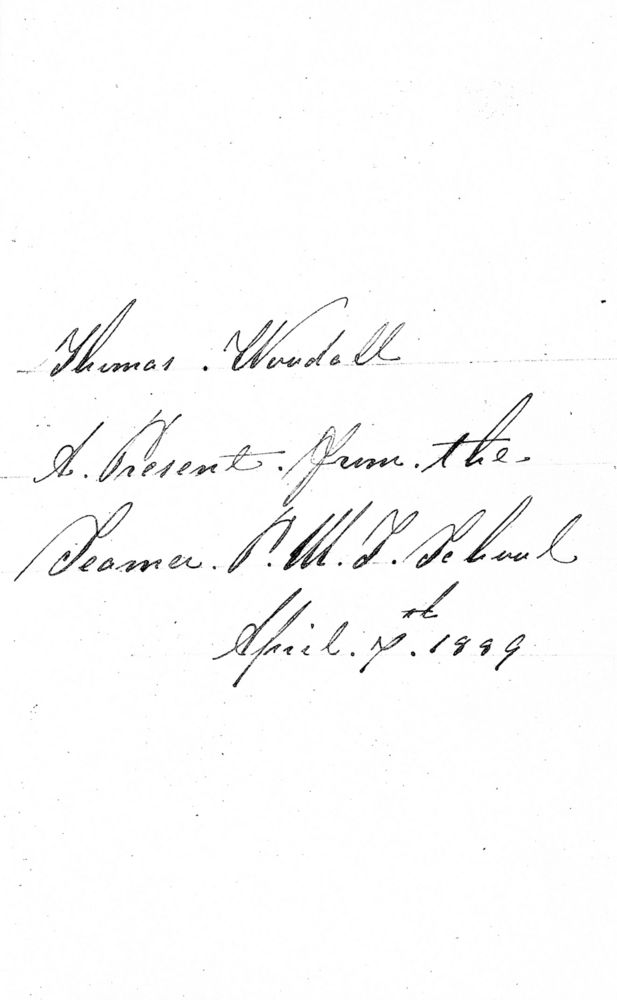 Thomas . Woodall
A. Present. from. the.
Seamer. P. M. S. School
April. 7.th 1889